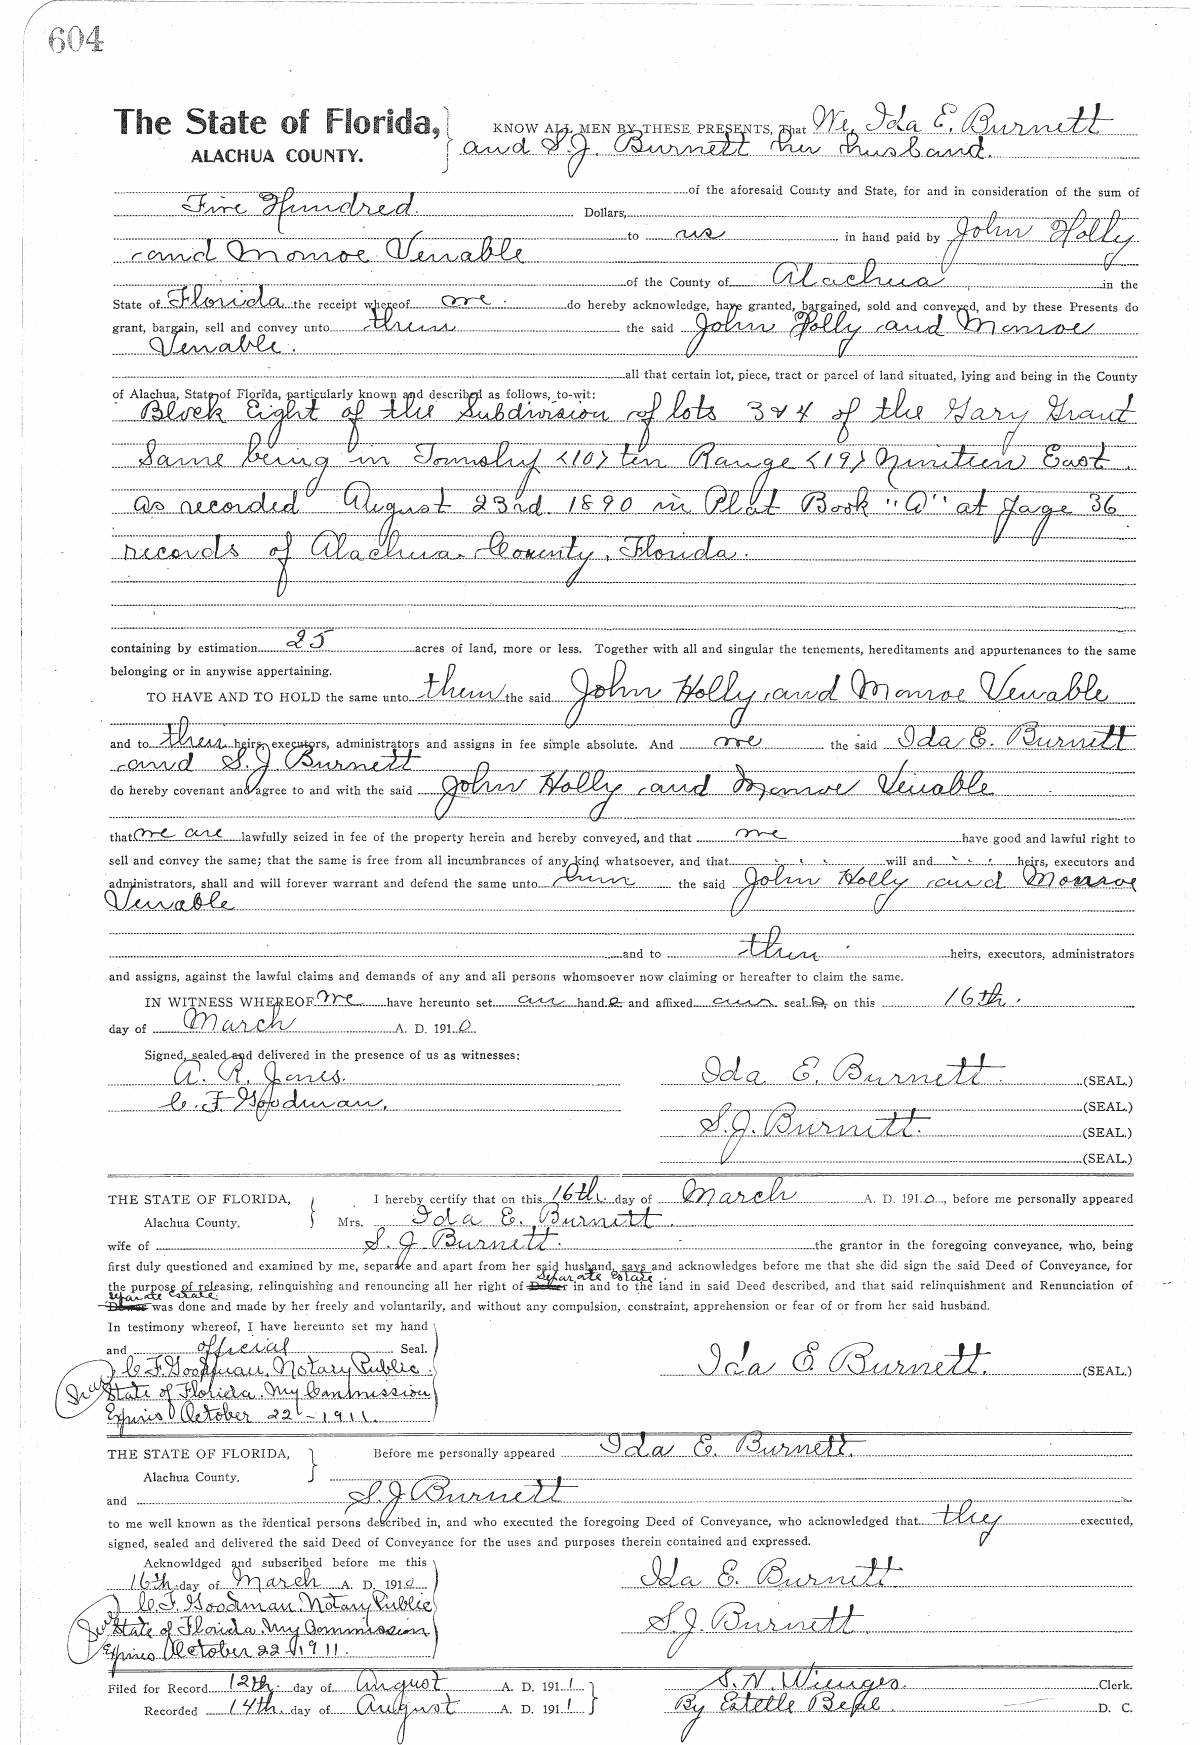 604
The State of Florida, } KNOW ALL MEN BY THESE PRESENTS, That We, Ida E. Burnett
ALACHUA COUNTY. and S.J. Burnett her husband.
of the aforesaid County and State, for and in consideration of the sum of
Five Hundred Dollars,
to us in hand paid by John Holly
and Monroe Venable
of the County of Alachua in the
State of Florida the receipt whereof we do hereby acknowledge, have granted, bargained, sold and conveyed, and by these Presents do
grant, bargain, sell and convey unto them the said John Holly and Monroe
Venable.
all that certain lot, piece, tract or parcel of land situated, lying and being in the County
of Alachua, State of Florida, particularly known and described as follows, to-wit:
Block Eight of the Subdivision of lots 3 & 4 of the Gary Grant
Same being in Township <10> ten Range <19> Nineteen East.
as recorded August 23rd. 1890 in Plat Book "A" at page 36
records of Alachua County, Florida.
containing by estimation 25 acres of land, more or less. Together with all and singular the tenements, hereditaments and appurtenances to the same
belonging or in anywise appertaining.
TO HAVE AND TO HOLD the same unto them the said John Holly and Monroe Venable
and to their heirs, executors, administrators and assigns in fee simple absolute. And we the said Ida E. Burnett
and S.J. Burnett
do hereby covenant and agree to and with the said John Holly and Monroe Venable
that we are lawfully seized in fee of the property herein and hereby conveyed, and that we have good and lawful right to
sell and convey the same; that the same is free from all incumbrances of any kind whatsoever, and that will and heirs, executors and
administrators, shall and will forever warrant and defend the same unto the said John Holly and Monroe
Venable
and to their heirs, executors, administrators
and assigns, against the lawful claims and demands of any and all persons whomsoever now claiming or hereafter to claim the same.
IN WITNESS WHEREOF we have hereunto set our hands and affixed our seals on this 16th.
day of March A. D. 1910.
Signed, sealed and delivered in the presence of us as witnesses:
A. R. Jones. Ida E. Burnett (SEAL.)
C. F. Goodman. (SEAL.)
S.J. Burnett. (SEAL.)
(SEAL.)
THE STATE OF FLORIDA, } I hereby certify that on this 16th. day of March A. D. 1910, before me personally appeared
Alachua County. Mrs. Ida E. Burnett.
wife of S. J Burnett. the grantor in the foregoing conveyance, who, being
first duly questioned and examined by me, separate and apart from her said husband, says and acknowledges before me that she did sign the said Deed of Conveyance, for
Separate Estate
the purpose of releasing, relinquishing and renouncing all her right of Dower in and to the land in said Deed described, and that said relinquishment and Renunciation of
Separate Estate.
Dower was done and made by her freely and voluntarily, and without any compulsion, constraint, apprehension or fear of or from her said husband.
In testimony whereof, I have hereunto set my hand
and official Seal.
C. F. Goodman, Notary Public Ida E Burnett. (SEAL)
State of Florida. My Commission
Expires October 22 - 1911.
THE STATE OF FLORIDA, } Before me personally appeared Ida E. Burnett.
Alachua County.
and S.J Burnett
to me well known as the identical persons described in, and who executed the foregoing Deed of Conveyance, who acknowledged that they executed,
signed, sealed and delivered the said Deed of Conveyance for the uses and purposes therein contained and expressed.
Acknowldged and subscribed before me this
16th. day of March A. D. 1910 Ida E. Burnett
C. F. Goodman. Notary Public
State of Florida. My Commission S.J. Burnett.
Expires October 22 - 1911.
Filed for Record 12th. day of August A. D. 1911 S. H. Wienges. Clerk.
Recorded 14th. day of August A. D. 1911 By Estelle D. C.